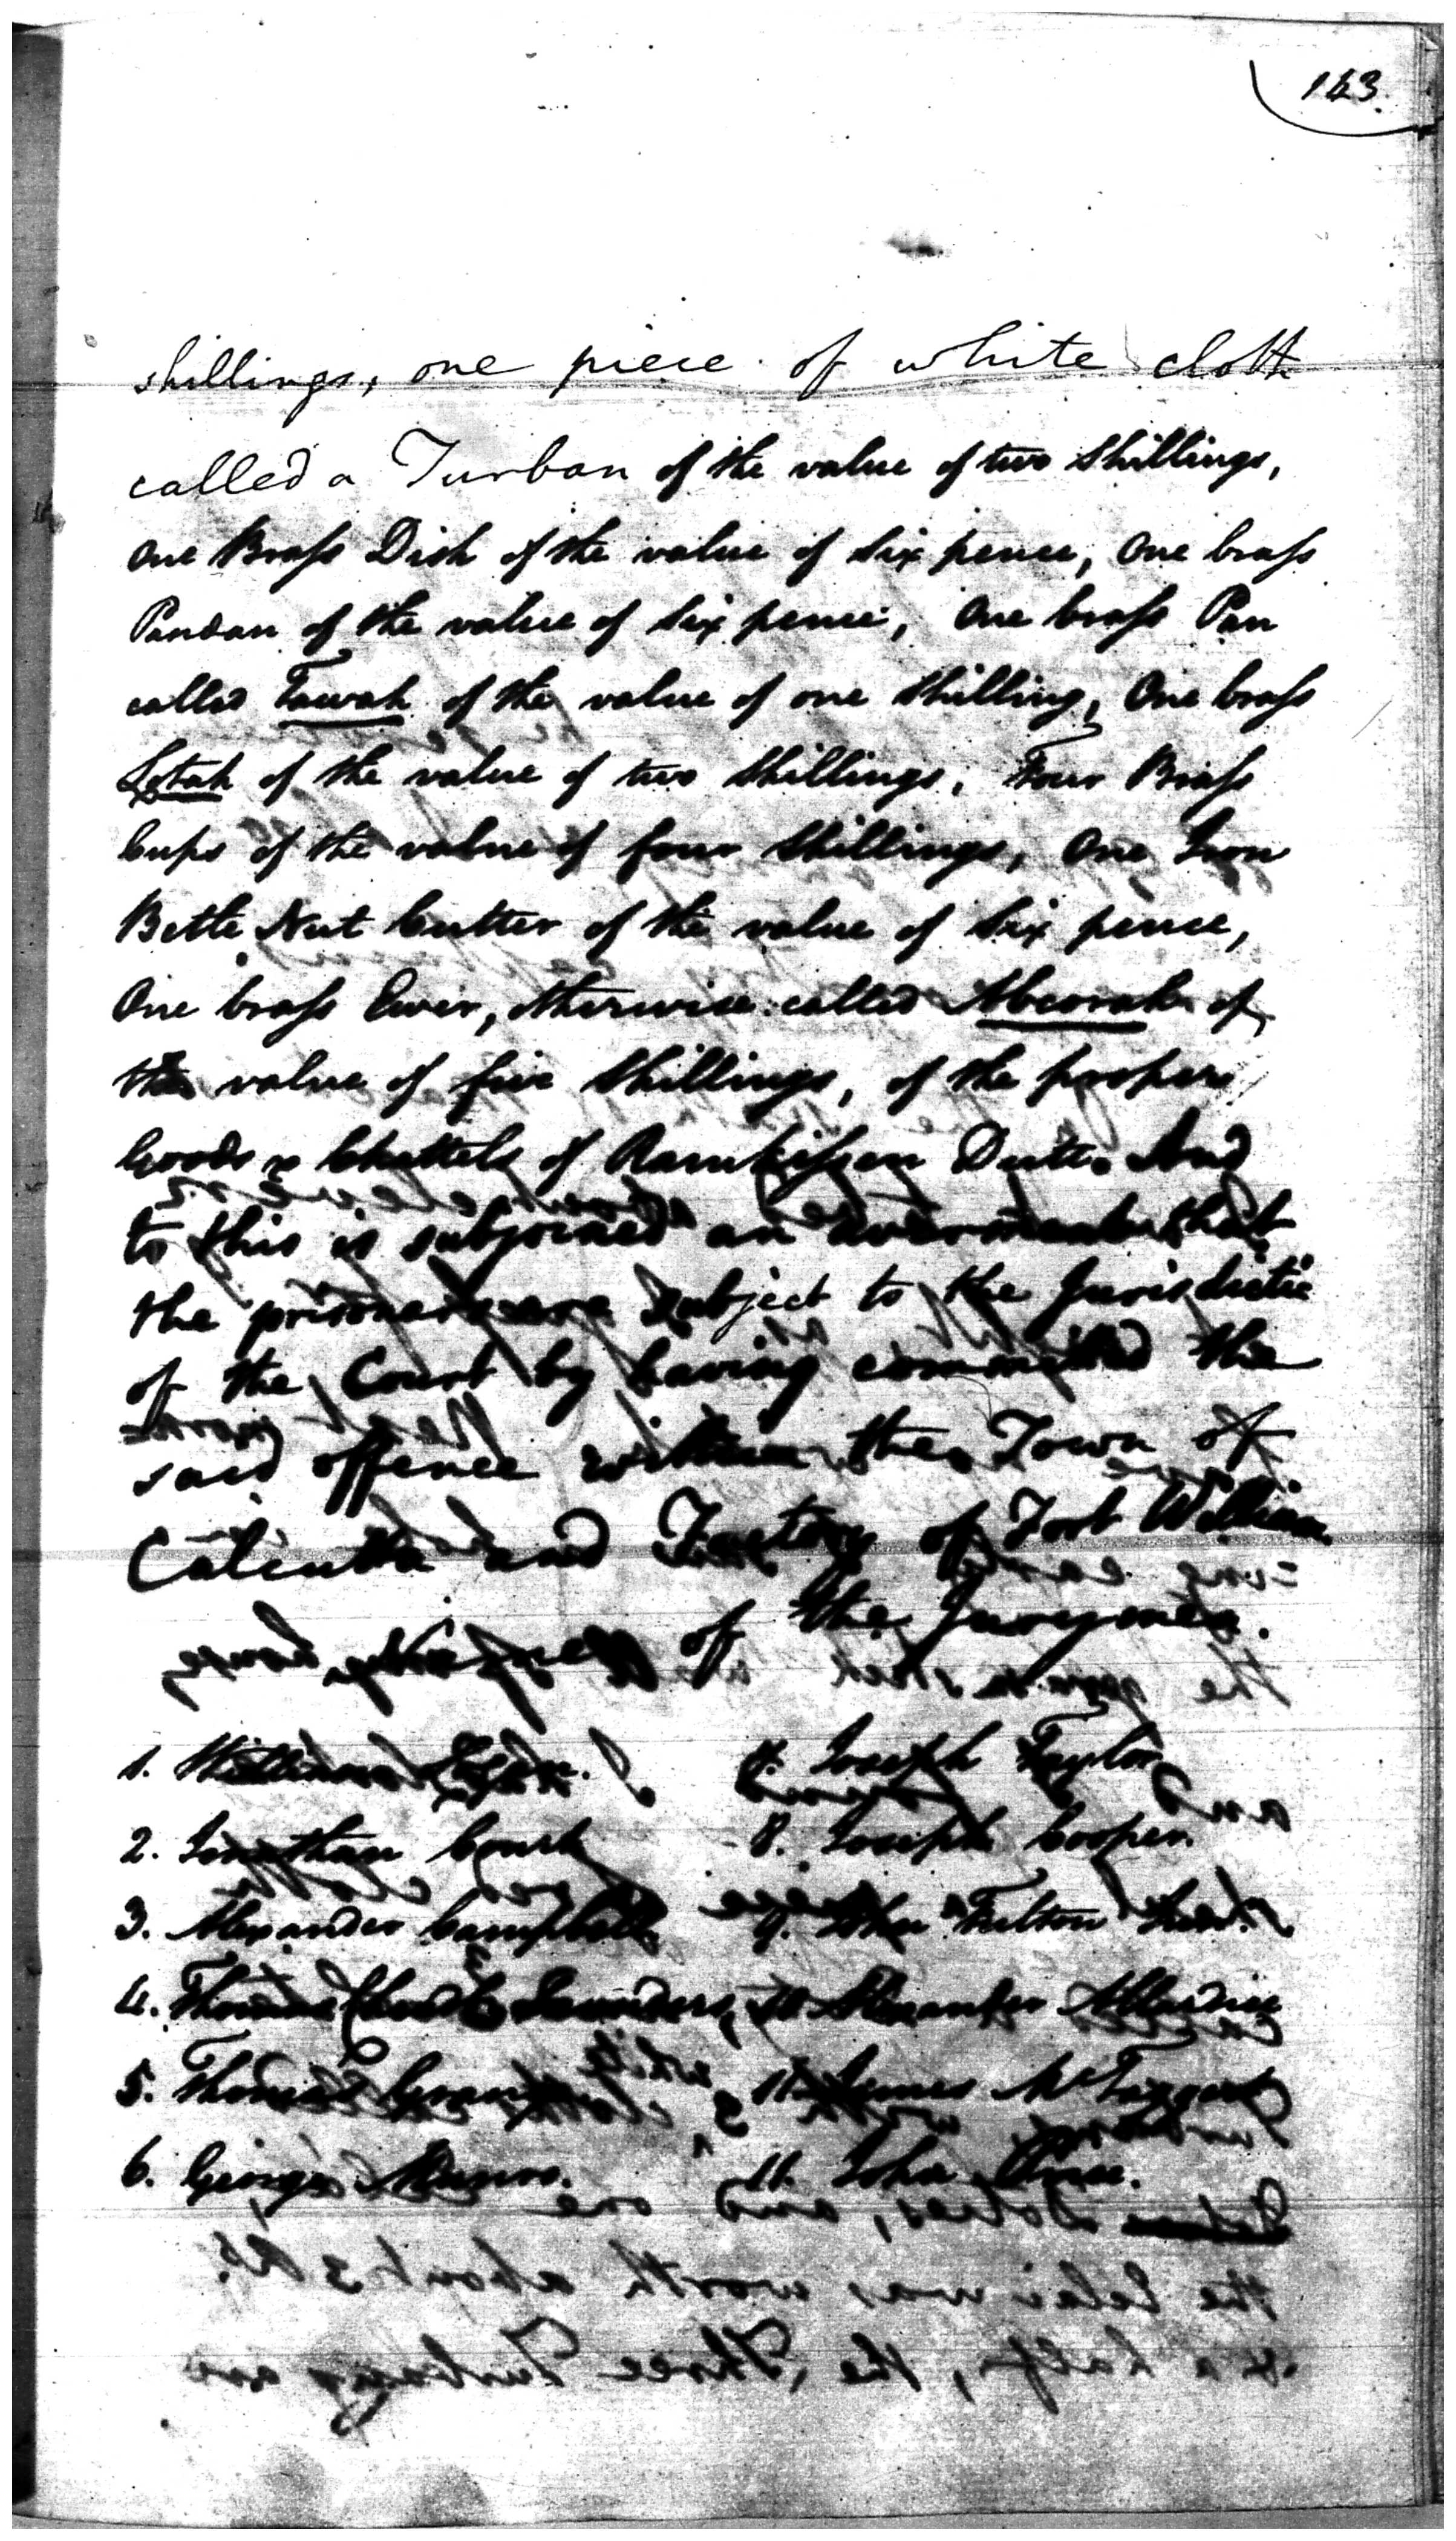 143.
shillings, one piece of white cloth
called a Turban of the value of two shillings,
One Brass Dish of the value of six pence, One brass
Pandan of the value of six pence, One brass Pan
called Tawah of the value of one shilling, One brass
Lotah of the value of two shillings, Four Brass
Cups of the value of four shillings, One Iron
Bettle Nut Cutter of the value of six pence,
One brass Ewer, otherwise called Abcorah of
the value of five shillings, of the proper
Goods & Chattels of Ramkissen Dutt. And
to this is subjoined an averment that
the prisoners are subject to the Jurisdictio
of the Court by having committed the
said offence within the Town of
Calcutta and Factory of Fort William
of the Jurymen.
1. William 7. Joseph Taylor
2. Jonathan 8. Joseph Cooper.
3. Alexander Campbell 9. John Fulton
4. Thomas Saunders, 10 Alexander
5. Thomas Grant 11. James McTaggart
6. George Munro. 11. John